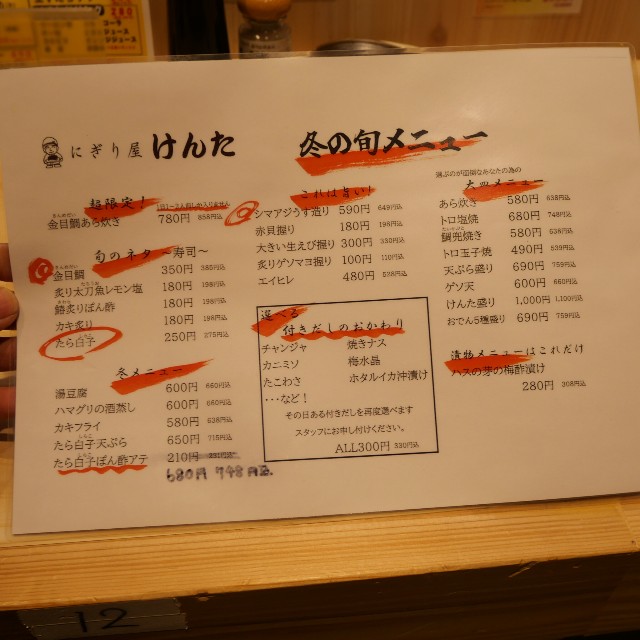 にぎり屋 けんた
冬の旬メニュー
超限定！
きんめだい
金目鯛あら炊き 780円 858円込
旬のネタ ～寿司～
きんめだい
金目鯛 350円 385円込
炙り太刀魚レモン塩 180円 198円込
鰆炙りぽん酢 180円 198円込
カキ炙り 180円 198円込
たら白子 250円 275円込
冬メニュー
湯豆腐 600円 660円込
ハマグリの酒蒸し 600円 660円込
カキフライ 580円 638円込
たら白子天ぷら 650円 715円込
たら白子ぽん酢アテ 210円 231円込
680円 748円込
これは旨い！
シマアジうす造り 590円 649円込
赤貝握り 180円 198円込
大きい生えび握り 300円 330円込
炙りゲソマヨ握り 100円 110円込
エイヒレ 480円 528円込
選べる
付きだしのおかわり
チャンジャ 焼きナス
カニミソ 梅水晶
たこわさ ホタルイカ沖漬け
・・・など！
その日ある付きだしを再度選べます
スタッフにお申し付けください。
ALL300円 330円込
選ぶのが面倒なあなたの為の
大皿メニュー
あら炊き 580円 638円込
トロ塩焼 680円 748円込
鯛兜焼き 580円 638円込
トロ玉子焼 490円 539円込
天ぷら盛り 690円 759円込
ゲソ天 600円 660円込
けんた盛り 1,000円 1,100円込
おでん5種盛り 690円 759円込
漬物メニューはこれだけ
ハスの芽の梅酢漬け
280円 308円込
12